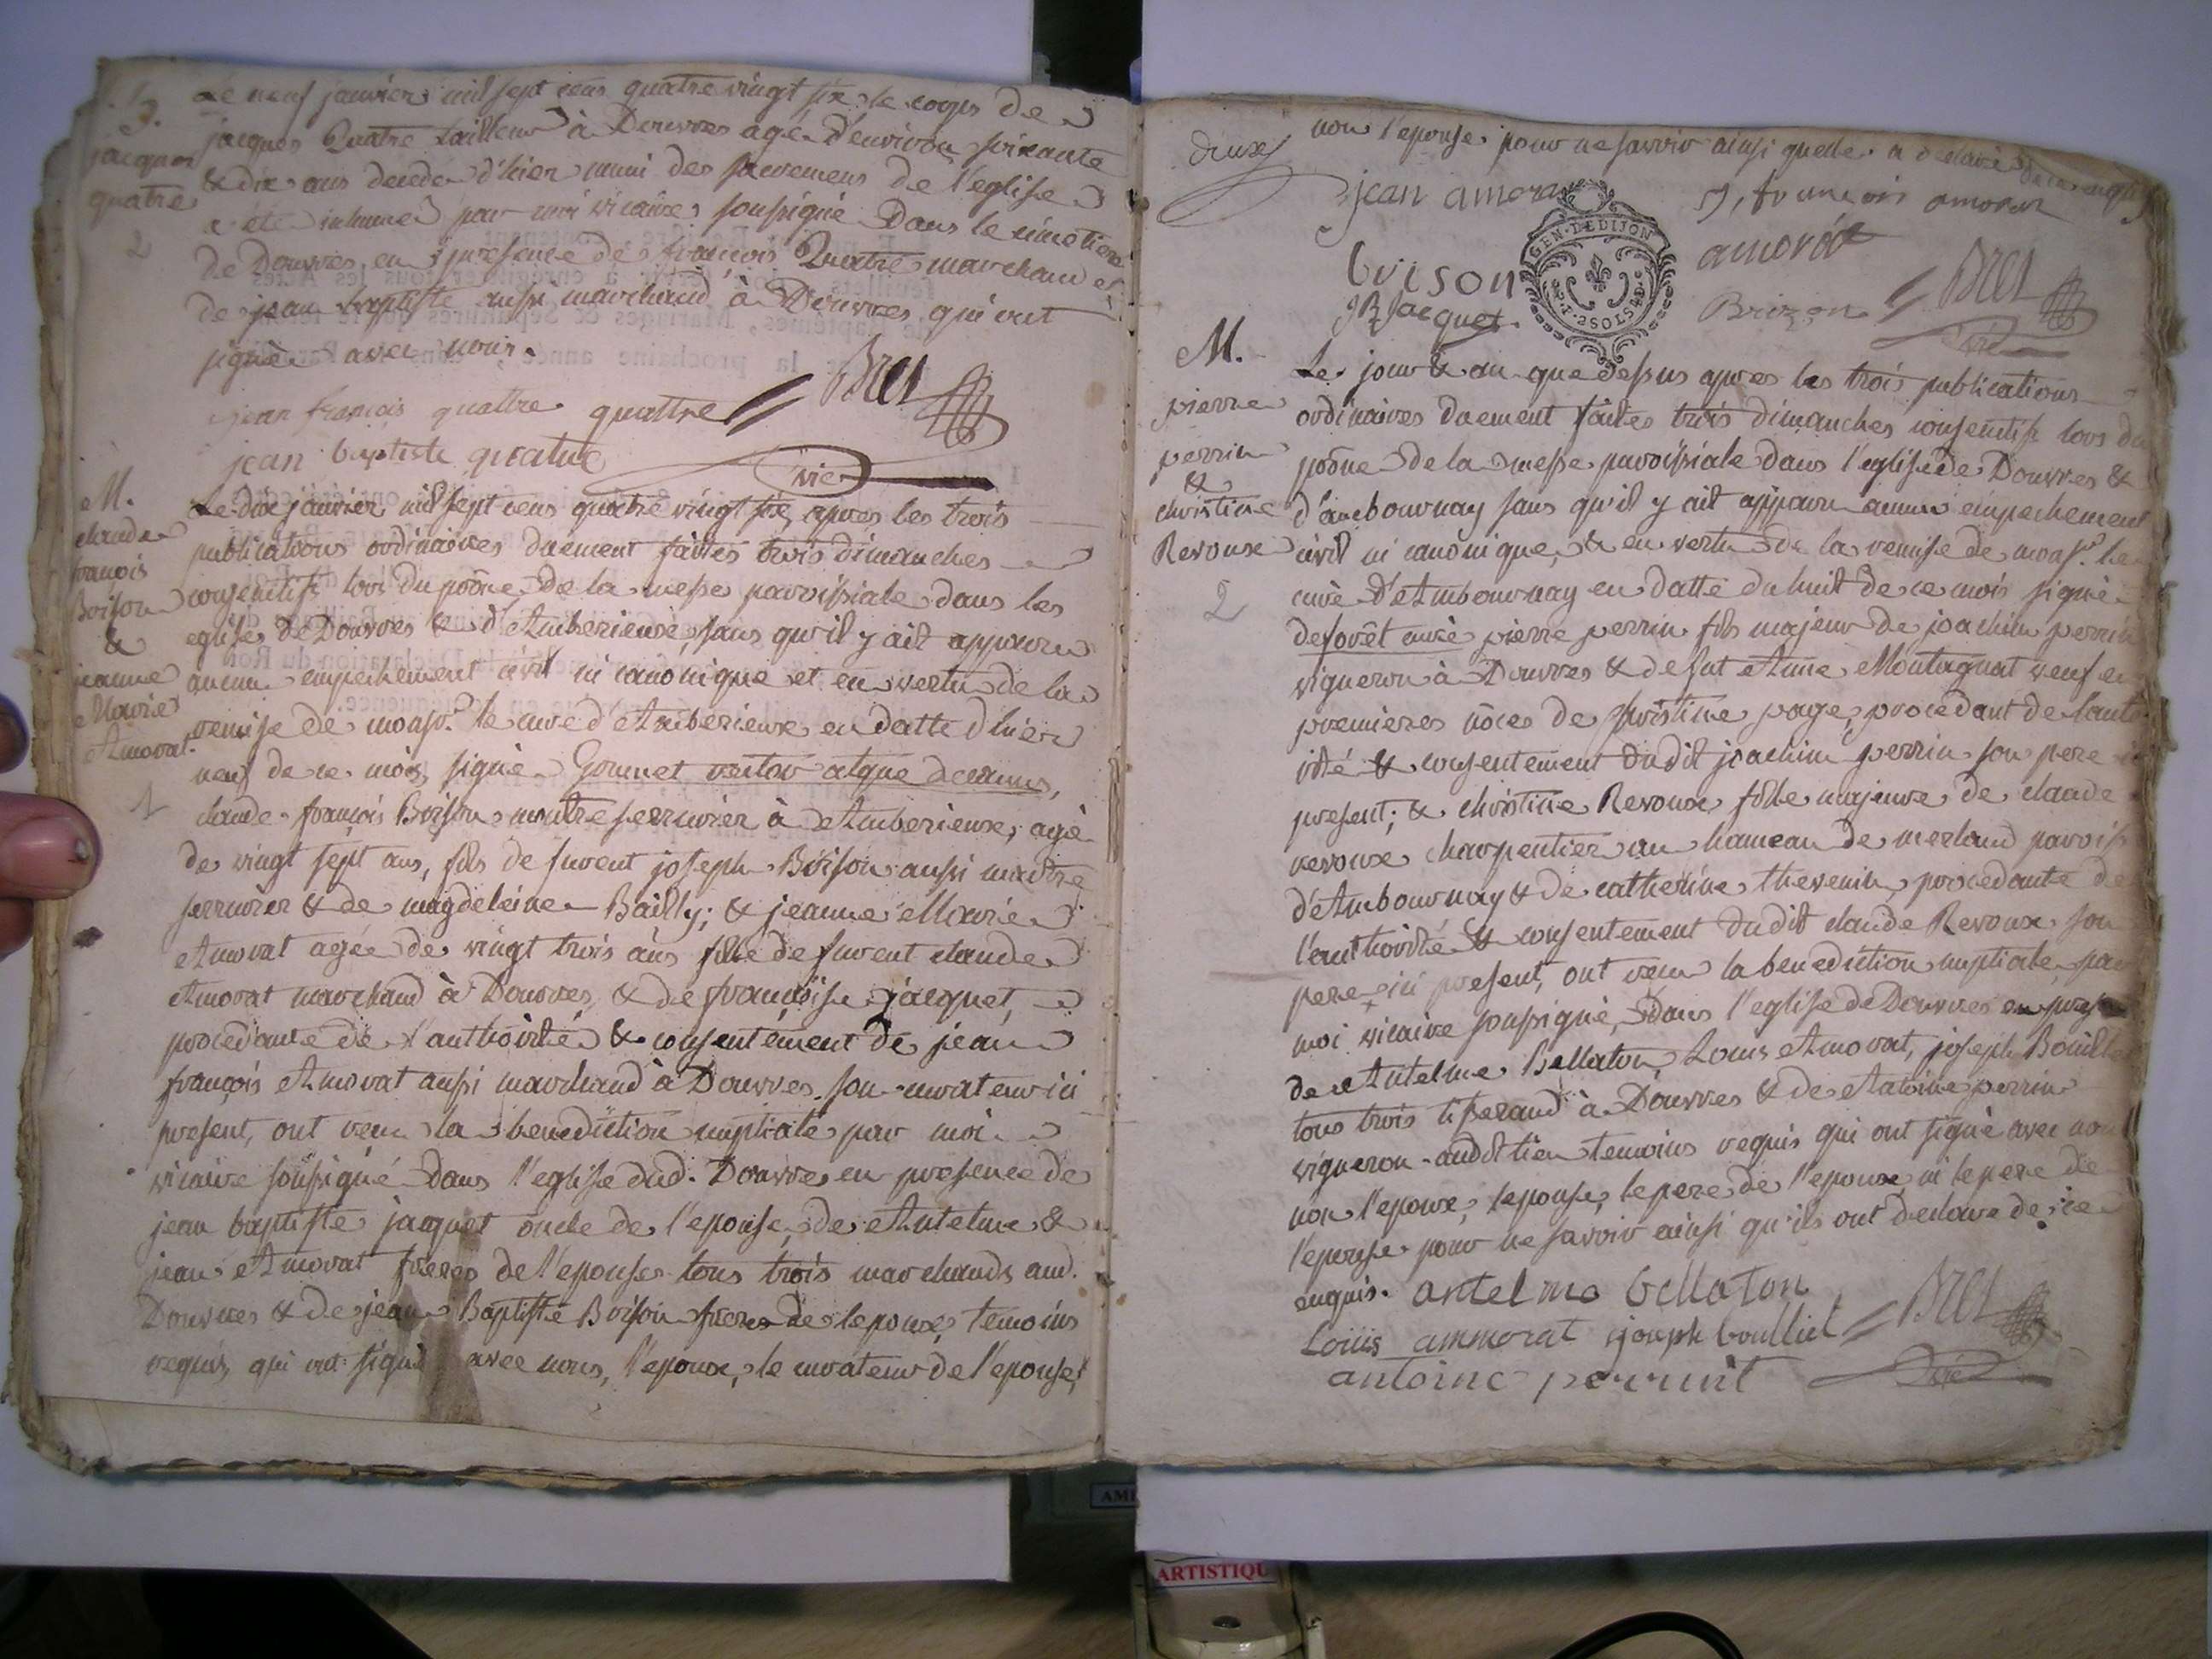 S.
jacques
quatre
2
Le neuf janvier mil sept cens quatre vingt six le corps de
jacques Quatre tailleur à Douvres agé d'environ soixante
& dix ans decedé d'hier muni des sacremens de l'eglise
a été inhumé par moi vicaire soussigné dans le cimetiere
de Douvres, en presence de françois Quatre marchand et
de jean baptiste aussi marchand à Douvres qui ont
signé avec nous.
jean francois quattre quattre Bret
jean baptiste quatre vic
M.
claude
françois
Boison
&
jeanne
Marie
Amorat.
1
Le dix janvier mil sept cens quatre vingt six, apres les trois
publications ordinaires duement faites trois dimanches
consecutifs lors du prône de la messe paroissiale dans les
eglises de Douvres & d'Amberieux, sans qu'il y ait apparu
aucun empechement civil ni canonique et en vertu de la
remise de monsr. le curé d'Amberieux en datte d'hier
neuf de ce mois, signé Gounet rector atque decanus,
claude françois Boison maitre serrurier à Amberieux, agé
de vingt sept ans, fils de furent joseph Boison aussi maitre
serrurier & de magdeleine Bailly; & jeanne Marie
Amorat agée de vingt trois ans fille de furent claude
Amorat marchand à Douvres, & de françoise jacquet,
procedante de l'authorité & consentement de jean
françois Amorat aussi marchand à Douvres son curateur ici
present, ont recu la benediction nuptiale par moi
vicaire soussigné dans l'eglise dud. Douvres en presence de
jean baptiste jacquet oncle de l'epouse, de Antelme &
jean Amorat freres de l'epouse tous trois marchands aud.
Douvres & de jean Baptiste Boison frere de l'epoux, temoins
requis, qui ont signé avec nous, l'epoux, le curateur de l'epouse,
deux
non l'epouse pour ne savoir ainsi quelle a declaré de ce enquise
jean amorat J, francois amorat
GEN. DE DIJON
2 SOLS 4 D.
boison amorat
JB Jacquet Boizon Bret
vic
M.
pierre
perrin
&
christine
Revoux
2
Le jour & an que dessus apres les trois publications
ordinaires duement faites trois dimanches consecutifs lors du
prône de la messe paroissiale dans l'eglise de Douvres &
d'ambournay sans qu'il y ait apparu aucun empechement
civil ni canonique, & en vertu de la remise de monsr. le
curé d'Ambournay en datte du huit de ce mois signé
deforêt curé pierre perrin fils majeur de joachim perrin
vigneron à Douvres & defut Anne Montagnat veuf en
premieres nôces de christine page, procedant de l'auto
rité & consentement dudit joachim perrin son pere ici
present; & christine Revoux fille majeure de claude
revoux charpentier au hameau de merland parois
d'Ambournay & de catherine thevenin, procedante de
l'authorité & consentement dudit claude Revoux son
pere ici present, ont recu la benediction nuptiale, par
moi vicaire soussigné, dans l'eglise de Douvres en presen
de Antelme Bellaton, Louis Amorat, joseph Bouillet
tous trois tisserand à Douvres & de Antoine perrin
vigneron audit lieu temoins requis qui ont signé avec nous
non l'epoux, l'epouse, le pere de l'epoux ni le pere de
l'epouse pour ne savoir ainsi qu'ils ont declare de ce
enquis. antelme bellaton
Louis ammorat joseph boulliet Bret
antoine perruint vic